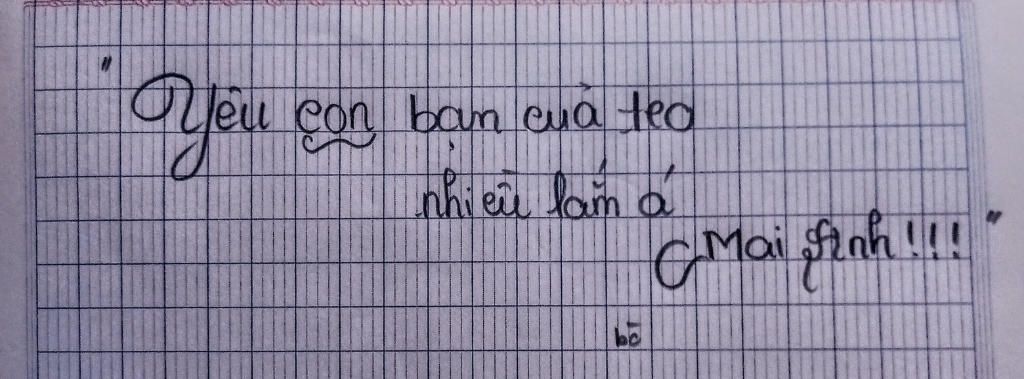 "Yêu con bạn của teo
nhiều lắm á
Mai Anh!!!"
bè